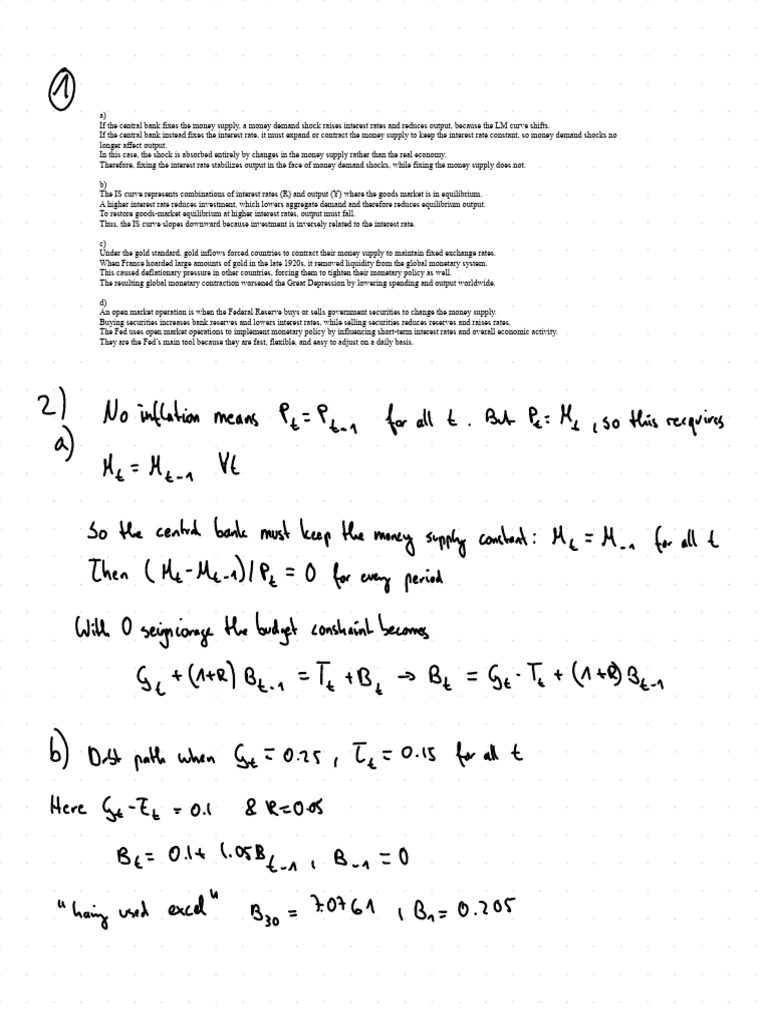 1
a)
If the central bank fixes the money supply, a money demand shock raises interest rates and reduces output, because the LM curve shifts.
If the central bank instead fixes the interest rate, it must expand or contract the money supply to keep the interest rate constant, so money demand shocks no
longer affect output.
In this case, the shock is absorbed entirely by changes in the money supply rather than the real economy.
Therefore, fixing the interest rate stabilizes output in the face of money demand shocks, while fixing the money supply does not.
b)
The IS curve represents combinations of interest rates (R) and output (Y) where the goods market is in equilibrium.
A higher interest rate reduces investment, which lowers aggregate demand and therefore reduces equilibrium output.
To restore goods-market equilibrium at higher interest rates, output must fall.
Thus, the IS curve slopes downward because investment is inversely related to the interest rate.
c)
Under the gold standard, gold inflows forced countries to contract their money supply to maintain fixed exchange rates.
When France hoarded large amounts of gold in the late 1920s, it removed liquidity from the global monetary system.
This caused deflationary pressure in other countries, forcing them to tighten their monetary policy as well.
The resulting global monetary contraction worsened the Great Depression by lowering spending and output worldwide.
d)
An open market operation is when the Federal Reserve buys or sells government securities to change the money supply.
Buying securities increases bank reserves and lowers interest rates, while selling securities reduces reserves and raises rates.
The Fed uses open market operations to implement monetary policy by influencing short-term interest rates and overall economic activity.
They are the Fed's main tool because they are fast, flexible, and easy to adjust on a daily basis.
2) No inflation means P_t = P_{t-1} for all t. But P_t = M_t, so this recquires
a) M_t = M_{t-1} ∀t
So the central bank must keep the money supply constant: M_t = M_{-1} for all t
Then (M_t - M_{t-1})/P_t = 0 for every period
With 0 seigniorage the budget constraint becomes
G_t + (1+R) B_{t-1} = T_t + B_t → B_t = G_t - T_t + (1+R) B_{t-1}
b) Debt path when G_t = 0.25, T_t = 0.15 for all t
Here G_t - T_t = 0.1 & R=0.05
B_t = 0.1 + 1.05B_{t-1}, B_{-1} = 0
"having used excel" B_30 = 7.0761, B_1 = 0.205